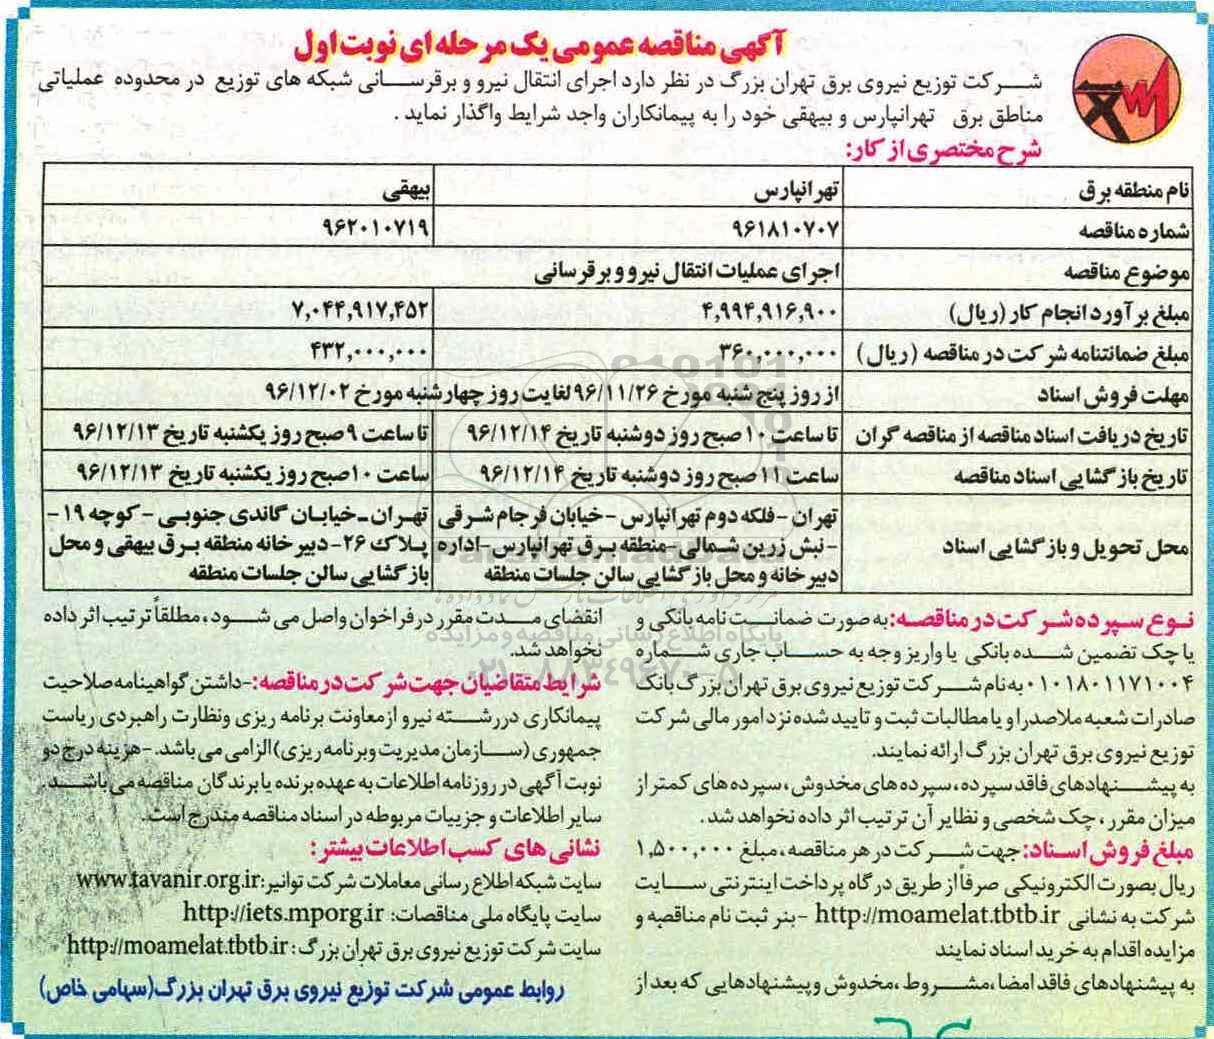 آگهی مناقصه عمومی یک مرحله ای نوبت اول
شرکت توزیع نیروی برق تهران بزرگ در نظر دارد اجرای انتقال نیرو و برقرسانی شبکه های توزیع در محدوده عملیاتی
مناطق برق تهرانپارس و بیهقی خود را به پیمانکاران واجد شرایط واگذار نماید .
شرح مختصری از کار:
نام منطقه برق تهرانپارس بیهقی
شماره مناقصه ۹۶۱۸۱۰۷۰۷ ۹۶۲۰۱۰۷۱۹
موضوع مناقصه اجرای عملیات انتقال نیرو و برقرسانی
مبلغ برآورد انجام کار (ریال) ۴,۹۹۴,۹۱۶,۹۰۰ ۷,۰۴۴,۹۱۷,۴۵۲
مبلغ ضمانتنامه شرکت در مناقصه (ریال) ۳۶۰,۰۰۰,۰۰۰ ۴۳۲,۰۰۰,۰۰۰
مهلت فروش اسناد از روز پنج شنبه مورخ ۹۶/۱۱/۲۶ لغایت روز چهارشنبه مورخ ۹۶/۱۲/۰۲
تاریخ دریافت اسناد مناقصه از مناقصه گران تا ساعت ۱۰ صبح روز دوشنبه تاریخ ۹۶/۱۲/۱۴ تا ساعت ۹ صبح روز یکشنبه تاریخ ۹۶/۱۲/۱۳
تاریخ بازگشایی اسناد مناقصه ساعت ۱۱ صبح روز دوشنبه تاریخ ۹۶/۱۲/۱۴ ساعت ۱۰ صبح روز یکشنبه تاریخ ۹۶/۱۲/۱۳
محل تحویل و بازگشایی اسناد
تهران - فلکه دوم تهرانپارس - خیابان فرجام شرقی
- نبش زرین شمالی - منطقه برق تهرانپارس - اداره
دبیرخانه و محل بازگشایی سالن جلسات منطقه
تهران - خیابان گاندی جنوبی - کوچه ۱۹ -
پلاک ۲۶ - دبیرخانه منطقه برق بیهقی و محل
بازگشایی سالن جلسات منطقه
نوع سپرده شرکت در مناقصه: به صورت ضمانت نامه بانکی و
یا چک تضمین شده بانکی یا واریز وجه به حساب جاری شماره
۰۱۰۱۸۰۱۱۷۱۰۰۴ به نام شرکت توزیع نیروی برق تهران بزرگ بانک
صادرات شعبه ملاصدرا و یا مطالبات ثبت و تایید شده نزد امور مالی شرکت
توزیع نیروی برق تهران بزرگ ارائه نمایند.
به پیشنهادهای فاقد سپرده، سپرده های مخدوش، سپرده های کمتر از
میزان مقرر، چک شخصی و نظایر آن ترتیب اثر داده نخواهد شد.
مبلغ فروش اسناد: جهت شرکت در هر مناقصه، مبلغ ۱,۵۰۰,۰۰۰
ریال بصورت الکترونیکی صرفاً از طریق درگاه پرداخت اینترنتی سایت
شرکت به نشانی http://moamelat.tbtb.ir - بنر ثبت نام مناقصه و
مزایده اقدام به خرید اسناد نمایند
به پیشنهادهای فاقد امضا، مشروط، مخدوش و پیشنهادهایی که بعد از
انقضای مدت مقرر در فراخوان واصل می شود، مطلقاً ترتیب اثر داده
نخواهد شد.
شرایط متقاضیان جهت شرکت در مناقصه: - داشتن گواهینامه صلاحیت
پیمانکاری در رشته نیرو از معاونت برنامه ریزی ونظارت راهبردی ریاست
جمهوری (سازمان مدیریت وبرنامه ریزی) الزامی می باشد. - هزینه درج دو
نوبت آگهی در روزنامه اطلاعات به عهده برنده یا برندگان مناقصه می باشد.
سایر اطلاعات و جزییات مربوطه در اسناد مناقصه مندرج است.
نشانی های کسب اطلاعات بیشتر:
سایت شبکه اطلاع رسانی معاملات شرکت توانیر: www.tavanir.org.ir
سایت پایگاه ملی مناقصات: http://iets.mporg.ir
سایت شرکت توزیع نیروی برق تهران بزرگ: http://moamelat.tbtb.ir
روابط عمومی شرکت توزیع نیروی برق تهران بزرگ(سهامی خاص)
پایگاه اطلاع رسانی مناقصه و مزایده